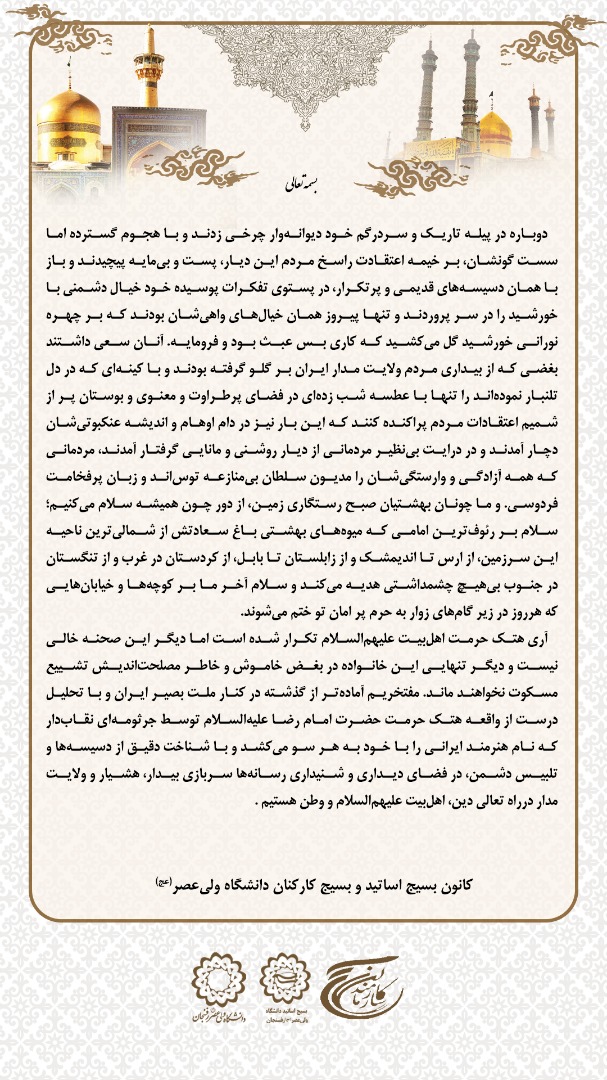 بسمه تعالی
دوباره در پیله تاریک و سردرگم خود دیوانه‌وار چرخی زدند و با هجوم گسترده اما
سست گونشان، بر خیمه اعتقادت راسخ مردم این دیار، پست و بی‌مایه پیچیدند و باز
با همان دسیسه‌های قدیمی و پرتکرار، در پستوی تفکرات پوسیده خود خیال دشمنی با
خورشید را در سر پروردند و تنها پیروز همان خیال‌های واهی‌شان بودند که بر چهره
نورانی خورشید گل می‌کشید که کاری بس عبث بود و فرومایه. آنان سعی داشتند
بغضی که از بیداری مردم ولایت مدار ایران بر گلو گرفته بودند و با کینه‌ای که در دل
تلنبار نموده‌اند را تنها با عطسه شب زده‌ای در فضای پرطراوت و معنوی و بوستان پر از
شمیم اعتقادات مردم پراکنده کنند که این بار نیز در دام اوهام و اندیشه عنکبوتی‌شان
دچار آمدند و در درایت بی‌نظیر مردمانی از دیار روشنی و مانایی گرفتار آمدند، مردمانی
که همه آزادگی و وارستگی‌شان را مدیون سلطان بی‌منازعه توس‌اند و زبان پرفخامت
فردوسی. و ما چونان بهشتیان صبح رستگاری زمین، از دور چون همیشه سلام می‌کنیم؛
سلام بر رئوف‌ترین امامی که میوه‌های بهشتی باغ سعادتش از شمالی‌ترین ناحیه
این سرزمین، از ارس تا اندیمشک و از زابلستان تا بابل، از کردستان در غرب و از تنگستان
در جنوب بی‌هیچ چشمداشتی هدیه می‌کند و سلام آخر ما بر کوچه‌ها و خیابان‌هایی
که هرروز در زیر گام‌های زوار به حرم پر امان تو ختم می‌شوند.
آری هتک حرمت اهل‌بیت علیهم‌السلام تکرار شده است اما دیگر این صحنه خالی
نیست و دیگر تنهایی این خانواده در بغض خاموش و خاطر مصلحت‌اندیش تشییع
مسکوت نخواهند ماند. مفتخریم آماده‌تر از گذشته در کنار ملت بصیر ایران و با تحلیل
درست از واقعه هتک حرمت حضرت امام رضا علیه‌السلام توسط جرثومه‌ای نقاب‌دار
که نام هنرمند ایرانی را با خود به هر سو می‌کشد و با شناخت دقیق از دسیسه‌ها و
تلبیس دشمن، در فضای دیداری و شنیداری رسانه‌ها سربازی بیدار، هشیار و ولایت
مدار درراه تعالی دین، اهل‌بیت علیهم‌السلام و وطن هستیم .
کانون بسیج اساتید و بسیج کارکنان دانشگاه ولی‌عصر(عج)
بسیج اساتید دانشگاه
ولی‌عصر(عج) رفسنجان
دانشگاه ولی‌عصر رفسنجان